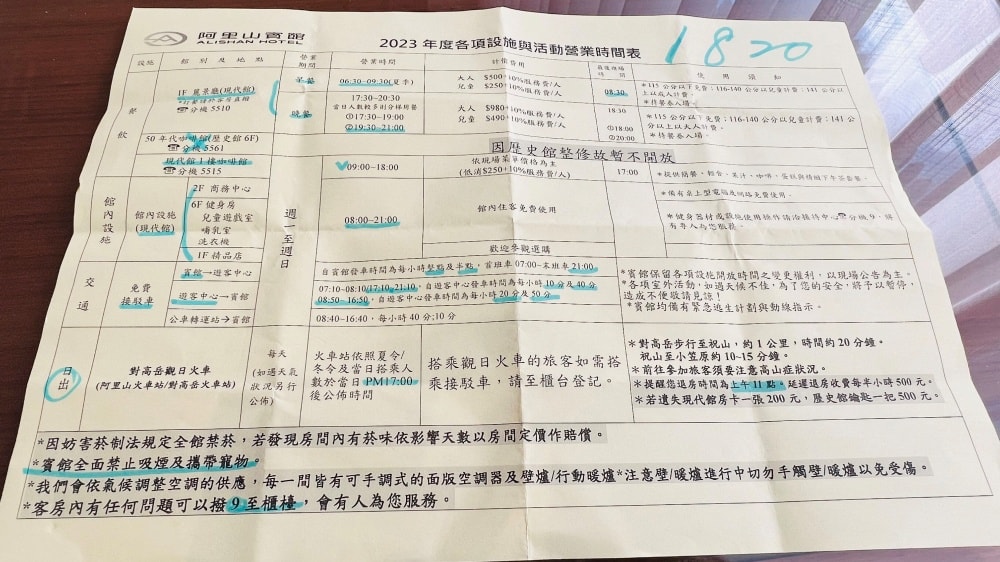 阿里山賓館
ALISHAN HOTEL
2023 年度各項設施與活動營業時間表
1820
設施
館別及地點
營業期間
營業時間
計價費用
最後進場時間
使用須知
餐飲
1F 麗景廳(現代館)
☎分機 5510
早餐
06:30~09:30(夏季)
大人 $500+10%服務費/人
兒童 $250+10%服務費/人
08:30
*115 公分以下免費;116-140 公分以兒童計費;141 公分以上以成人計費。
*持餐券入場。
晚餐
17:30~20:30
當日人數較多則分梯用餐
①17:30~19:00
②19:30~21:00
大人 $980+10%服務費/人
兒童 $490+10%服務費/人
18:30
①18:00
②20:00
*115 公分以下免費;116-140 公分以兒童計費;141 公分以上以大人計費。
*持餐券入場。
50 年代咖啡館(歷史館 6F)
☎分機 5561
因歷史館整修故暫不開放
現代館 1 樓咖啡館
☎分機 5515
週一至週日
09:00~18:00
依現場菜單價格為主
(低消$250+10%服務費/人)
17:00
*提供簡餐、輕食、果汁、咖啡、蛋糕與精緻下午茶套餐。
館內設施
館內設施
(現代館)
2F 商務中心
6F 健身房
兒童遊戲室
哺乳室
洗衣機
1F 精品店
08:00~21:00
館內住客免費使用
歡迎參觀選購
*備有桌上型電腦及網路免費使用。
*健身器材或設施使用操作請洽接待中心☎分機 9,將有專人為您服務。
交通
免費接駁車
賓館→遊客中心
自賓館發車時間為每小時整點及半點,首班車 07:00~末班車 21:00
遊客中心→賓館
07:10-08:10/17:10-21:10,自遊客中心發車時間為每小時 10分及 40分
08:50-16:50,自遊客中心發車時間為每小時 20分及 50分
公車轉運站→賓館
08:40-16:40,每小時 40分;10分
*賓館保留各項設施開放時間之變更權利,以現場公告為主。
*各項室外活動,如遇天候不佳,為了您的安全,將予以暫停,造成不便敬請見諒!
*賓館均備有緊急逃生計劃與動線指示。
日出
對高岳觀日火車
(阿里山火車站/對高岳火車站)
每天
(如遇天氣狀況另行公佈)
火車站依照夏令/冬令及當日搭乘人數於當日 PM17:00 後公佈時間
搭乘觀日火車的旅客如需搭乘接駁車,請至櫃台登記。
*對高岳步行至祝山,約 1 公里,時間約 20 分鐘。
祝山至小笠原約 10~15 分鐘。
*前往參加旅客須要注意高山症狀況。
*提醒您退房時間為上午 11 點。延遲退房收費每半小時 500 元。
*若遺失現代館房卡一張 200 元,歷史館鑰匙一把 500 元。
*因妨害菸制法規定全館禁菸,若發現房間內有菸味依影響天數以房間定價作賠償。
*賓館全面禁止吸煙及攜帶寵物。
*我們會依氣候調整空調的供應,每一間皆有可手調式的面版空調器及壁爐/行動暖爐*注意壁/暖爐進行中切勿手觸壁/暖爐以免受傷。
*客房內有任何問題可以撥 9 至櫃檯,會有人為您服務。